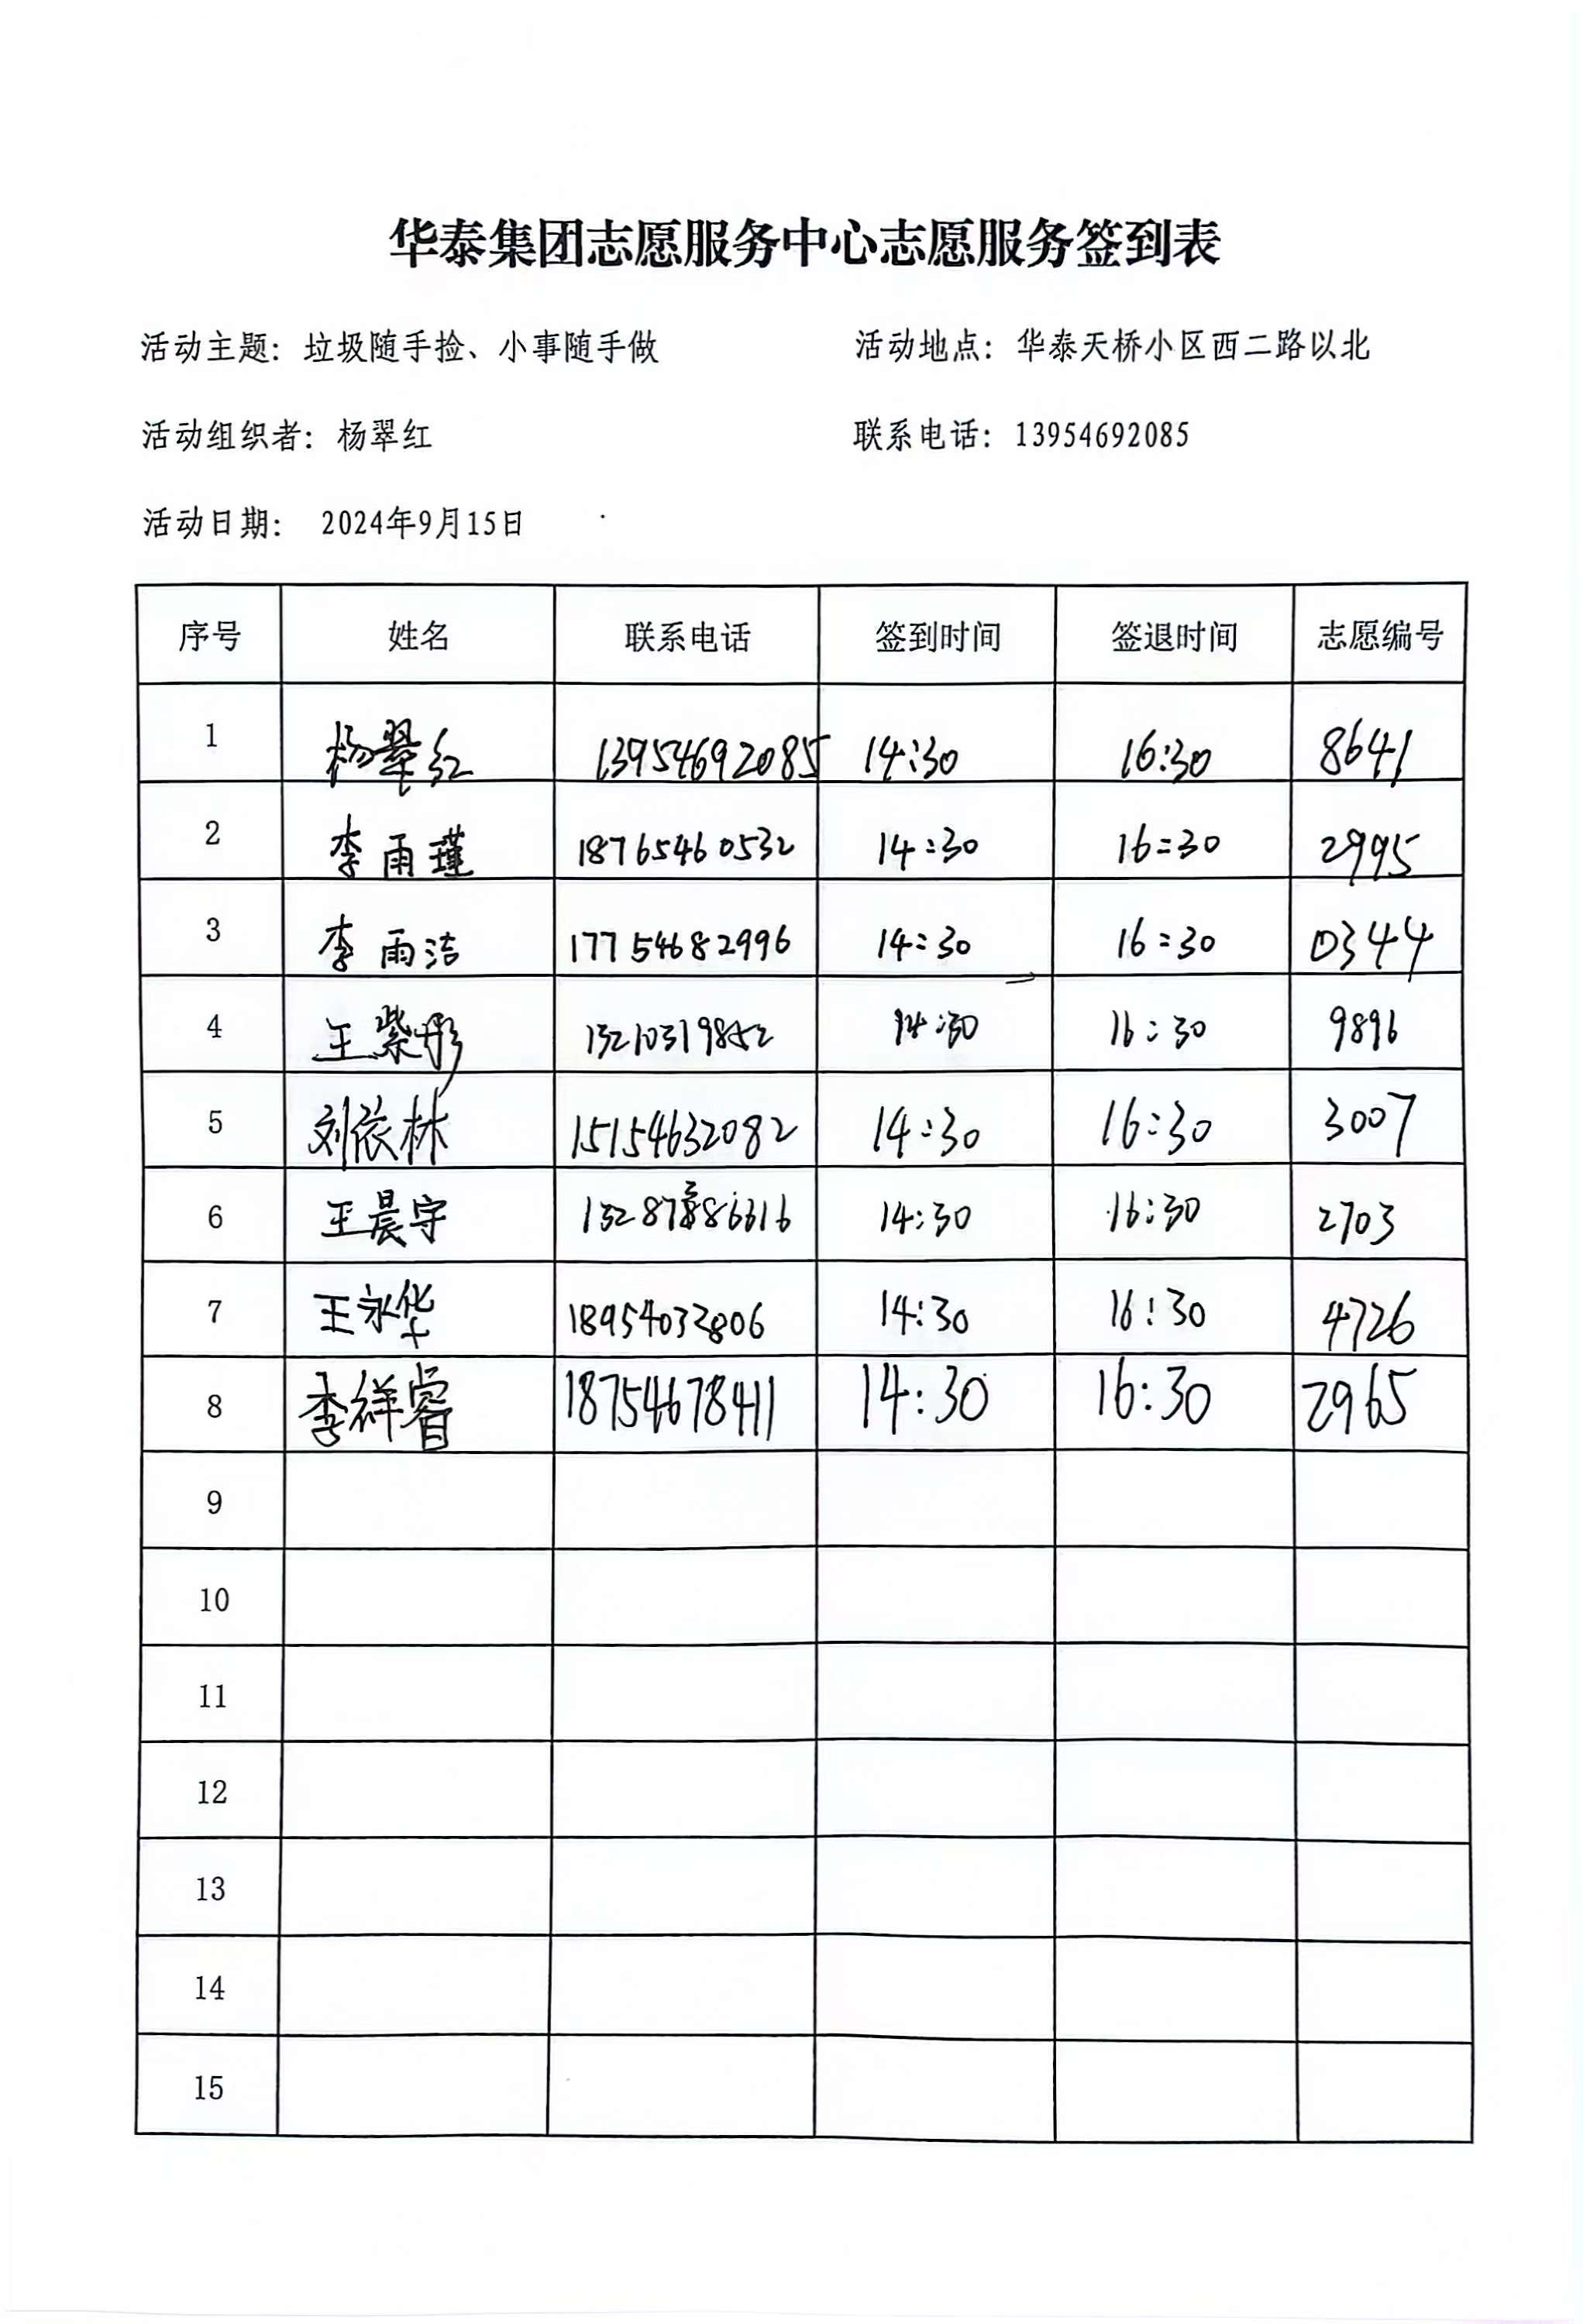 华泰集团志愿服务中心志愿服务签到表
活动主题：垃圾随手捡、小事随手做 活动地点：华泰天桥小区西二路以北
活动组织者：杨翠红 联系电话：13954692085
活动日期： 2024年9月15日
序号 姓名 联系电话 签到时间 签退时间 志愿编号
1 杨翠红 13954692085 14:30 16:30 8641
2 李雨瑾 18765460532 14:30 16:30 2995
3 李雨洁 17754682996 14:30 16:30 0344
4 王紫彤 14:30 16:30 9896
5 刘依林 15154632082 14:30 16:30 3007
6 王晨宇 14:30 16:30 2703
7 王永华 18954032806 14:30 16:30 4726
8 李祥睿 18754678411 14:30 16:30 2965
9
10
11
12
13
14
15